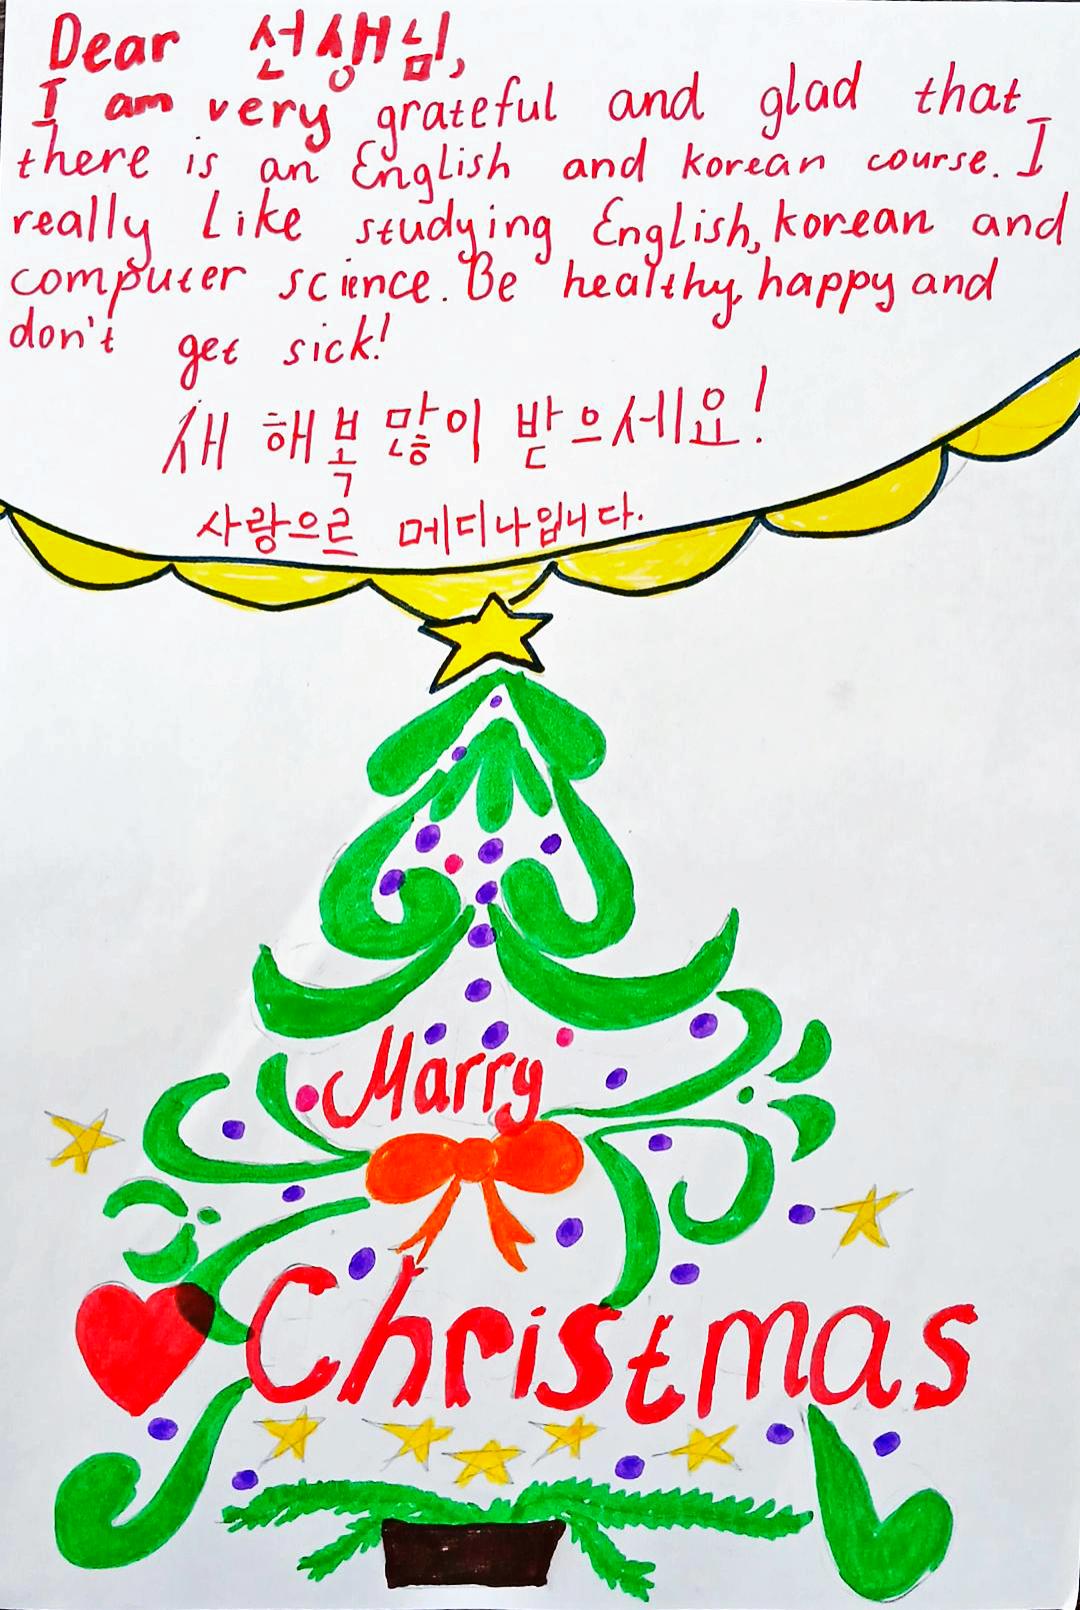 Dear 선생님,
I am very grateful and glad that
there is an English and korean course. I
really Like studying English, korean and
computer science. Be healthy, happy and
don't get sick!
새 해 복 많이 받으세요!
사랑으르 메디나입니다.
Marry
Christmas